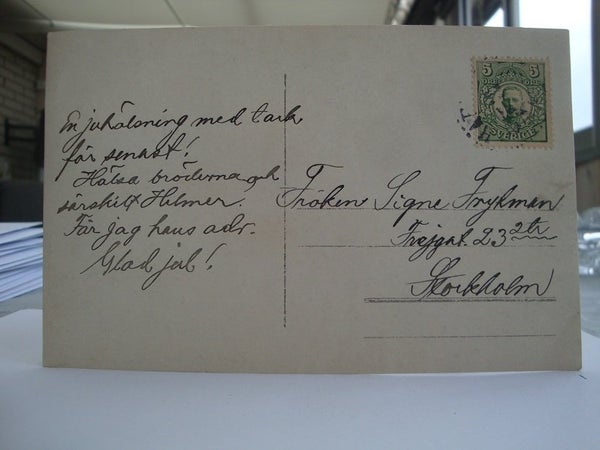 En julhälsning med tack
för senast!
Hälsa bröderna och
särskilt Helmer.
Får jag hans adr.
Glad jul!
5 5
SVERIGE
Fröken Signe Frykman
Frejgat. 23 2tr
Stockholm